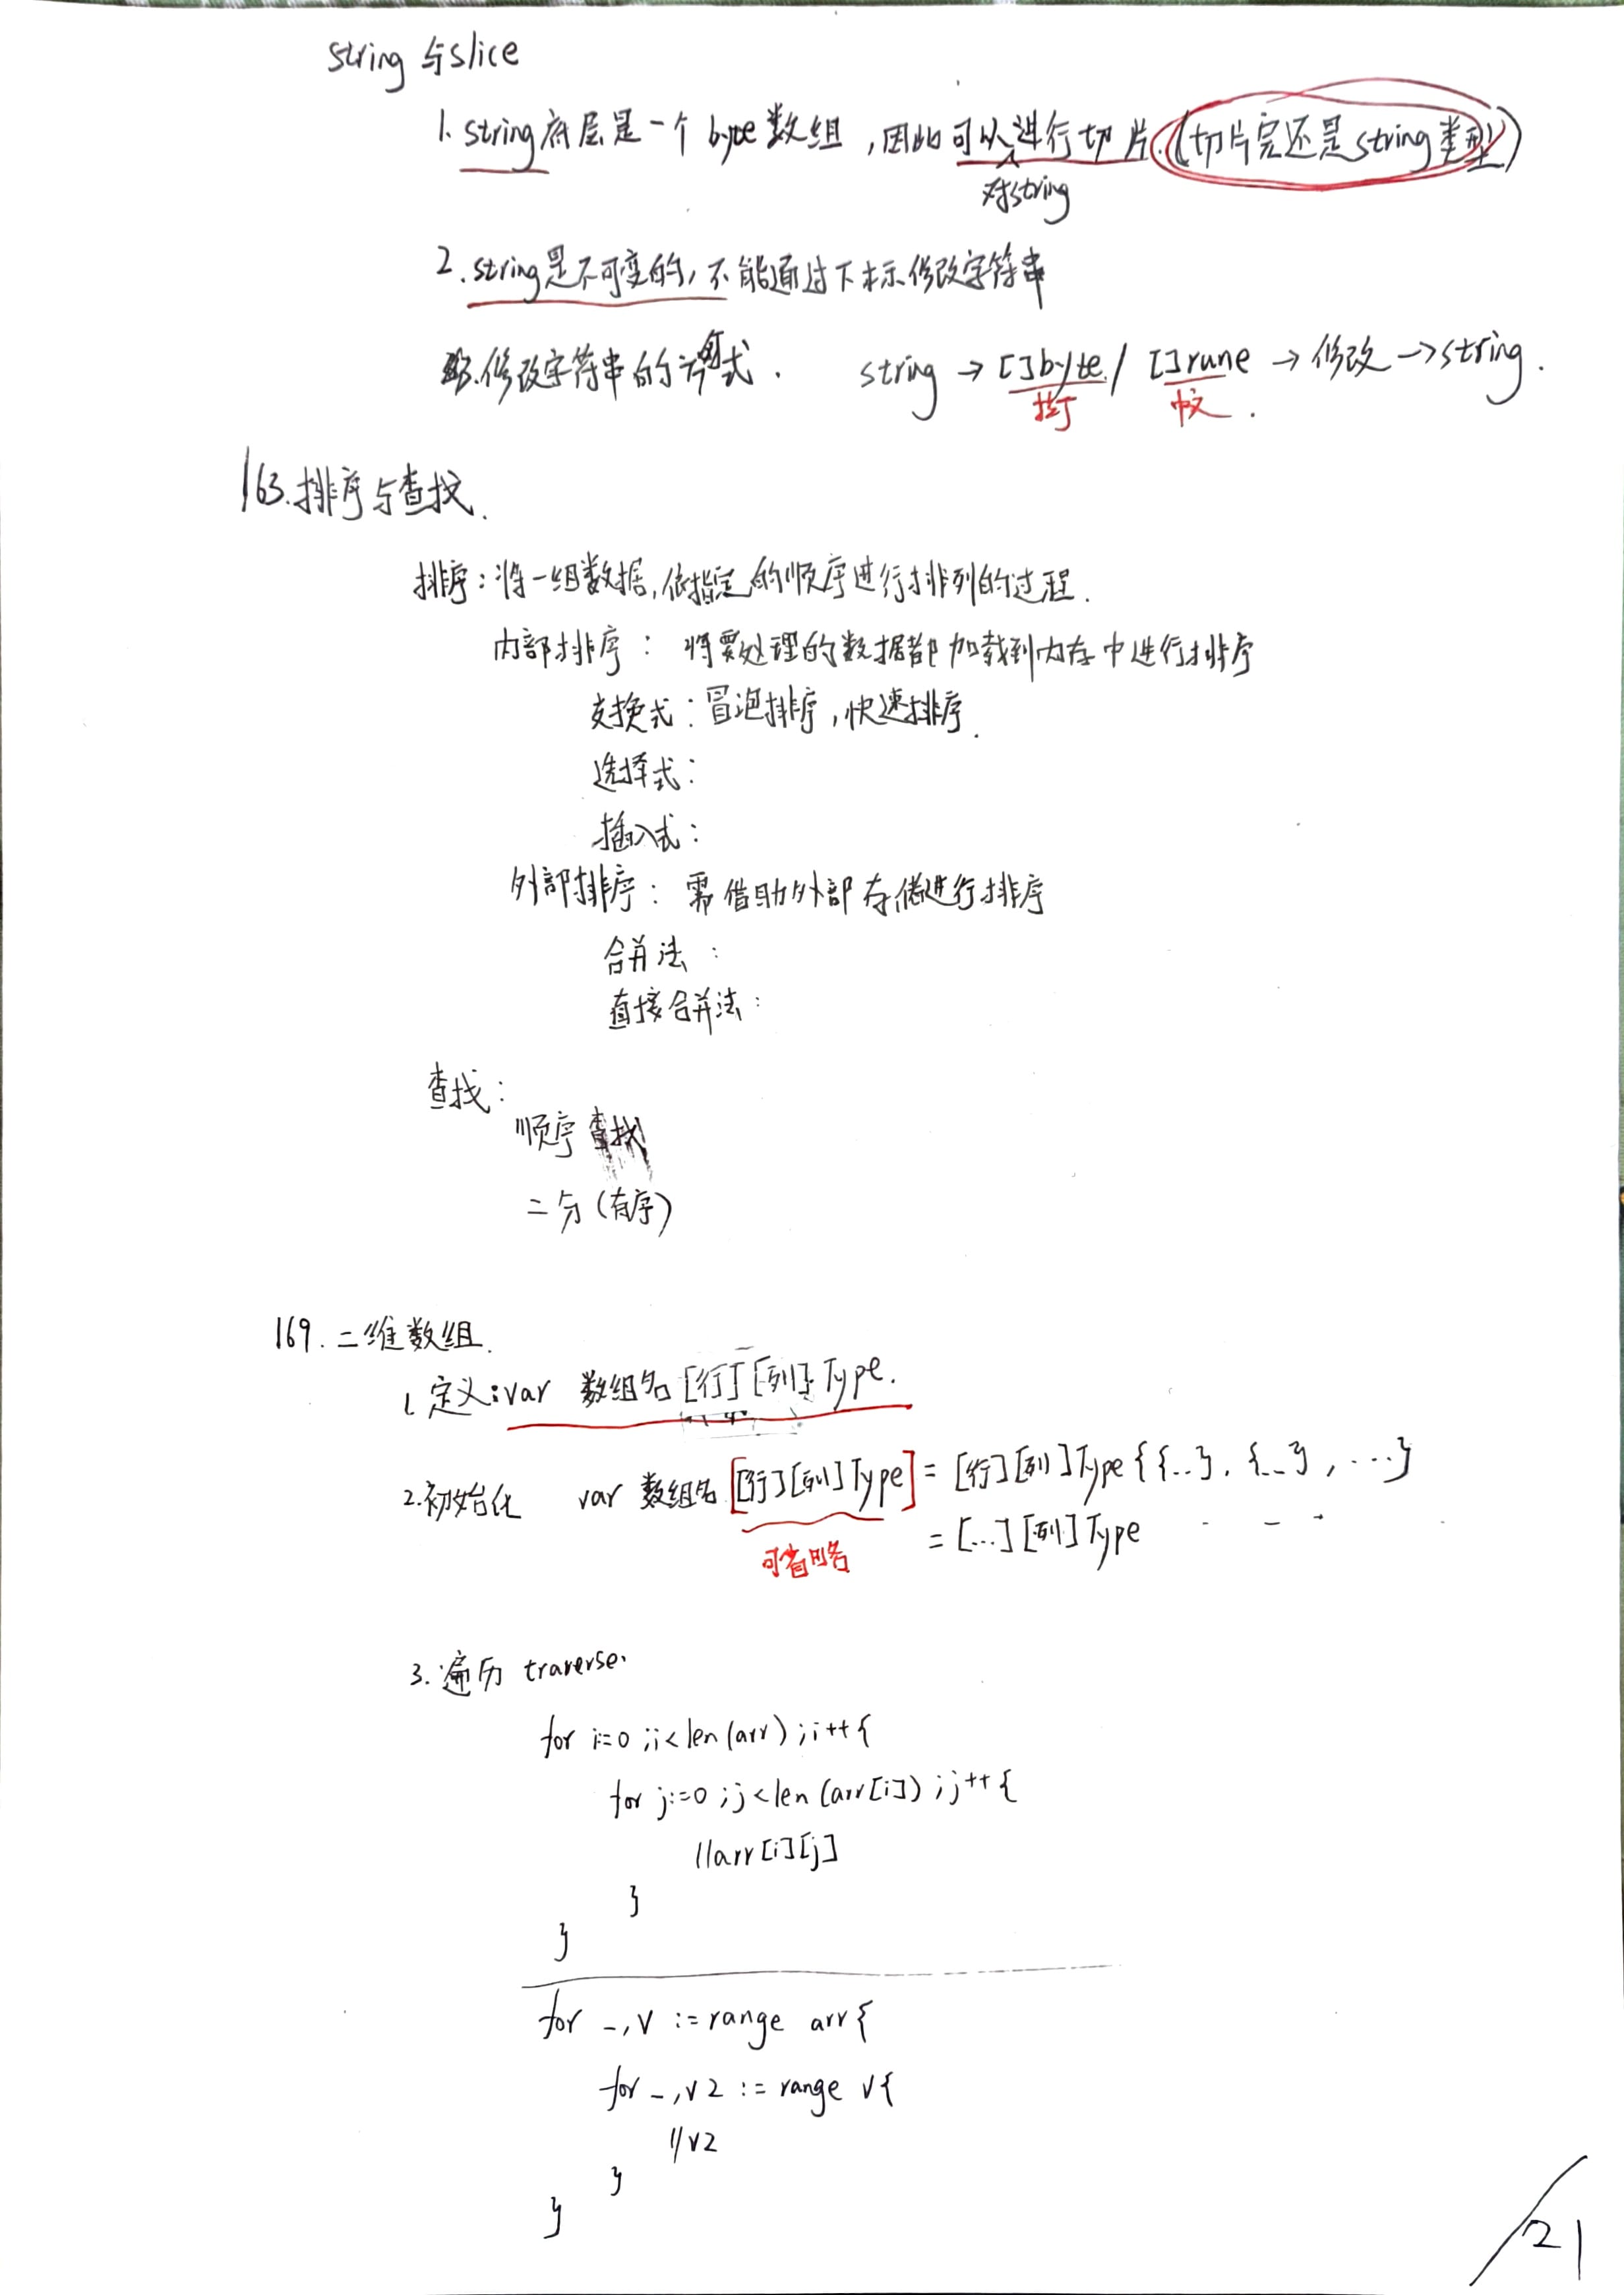 string 与slice
1. string底层是一个 byte 数组，因此可以对string进行切片.(切片完还是string类型)
2. string是不可变的，不能通过下标修改字符串
3. 修改字符串的方式. string → []byte / []rune → 修改 → string.
中文.
163. 排序与查找.
排序：将一组数据，依指定的顺序进行排列的过程.
内部排序：将要处理的数据都加载到内存中进行排序
交换式：冒泡排序，快速排序.
选择式：
插入式：
外部排序：需借助外部存储进行排序
合并法：
直接合并法：
查找：
顺序查找
二分（有序）
169. 二维数组.
1. 定义：var 数组名 [行][列] Type.
2. 初始化 var 数组名 [行][列] Type = [行][列] Type {{...}, {...}, ...}
可省略 = [...][列] Type
3. 遍历 traverse.
for i:=0 ; i<len(arr) ; i++ {
for j:=0 ; j<len(arr[i]) ; j++ {
//arr[i][j]
}
}
for _, v := range arr {
for _, v2 := range v {
//v2
}
}
21